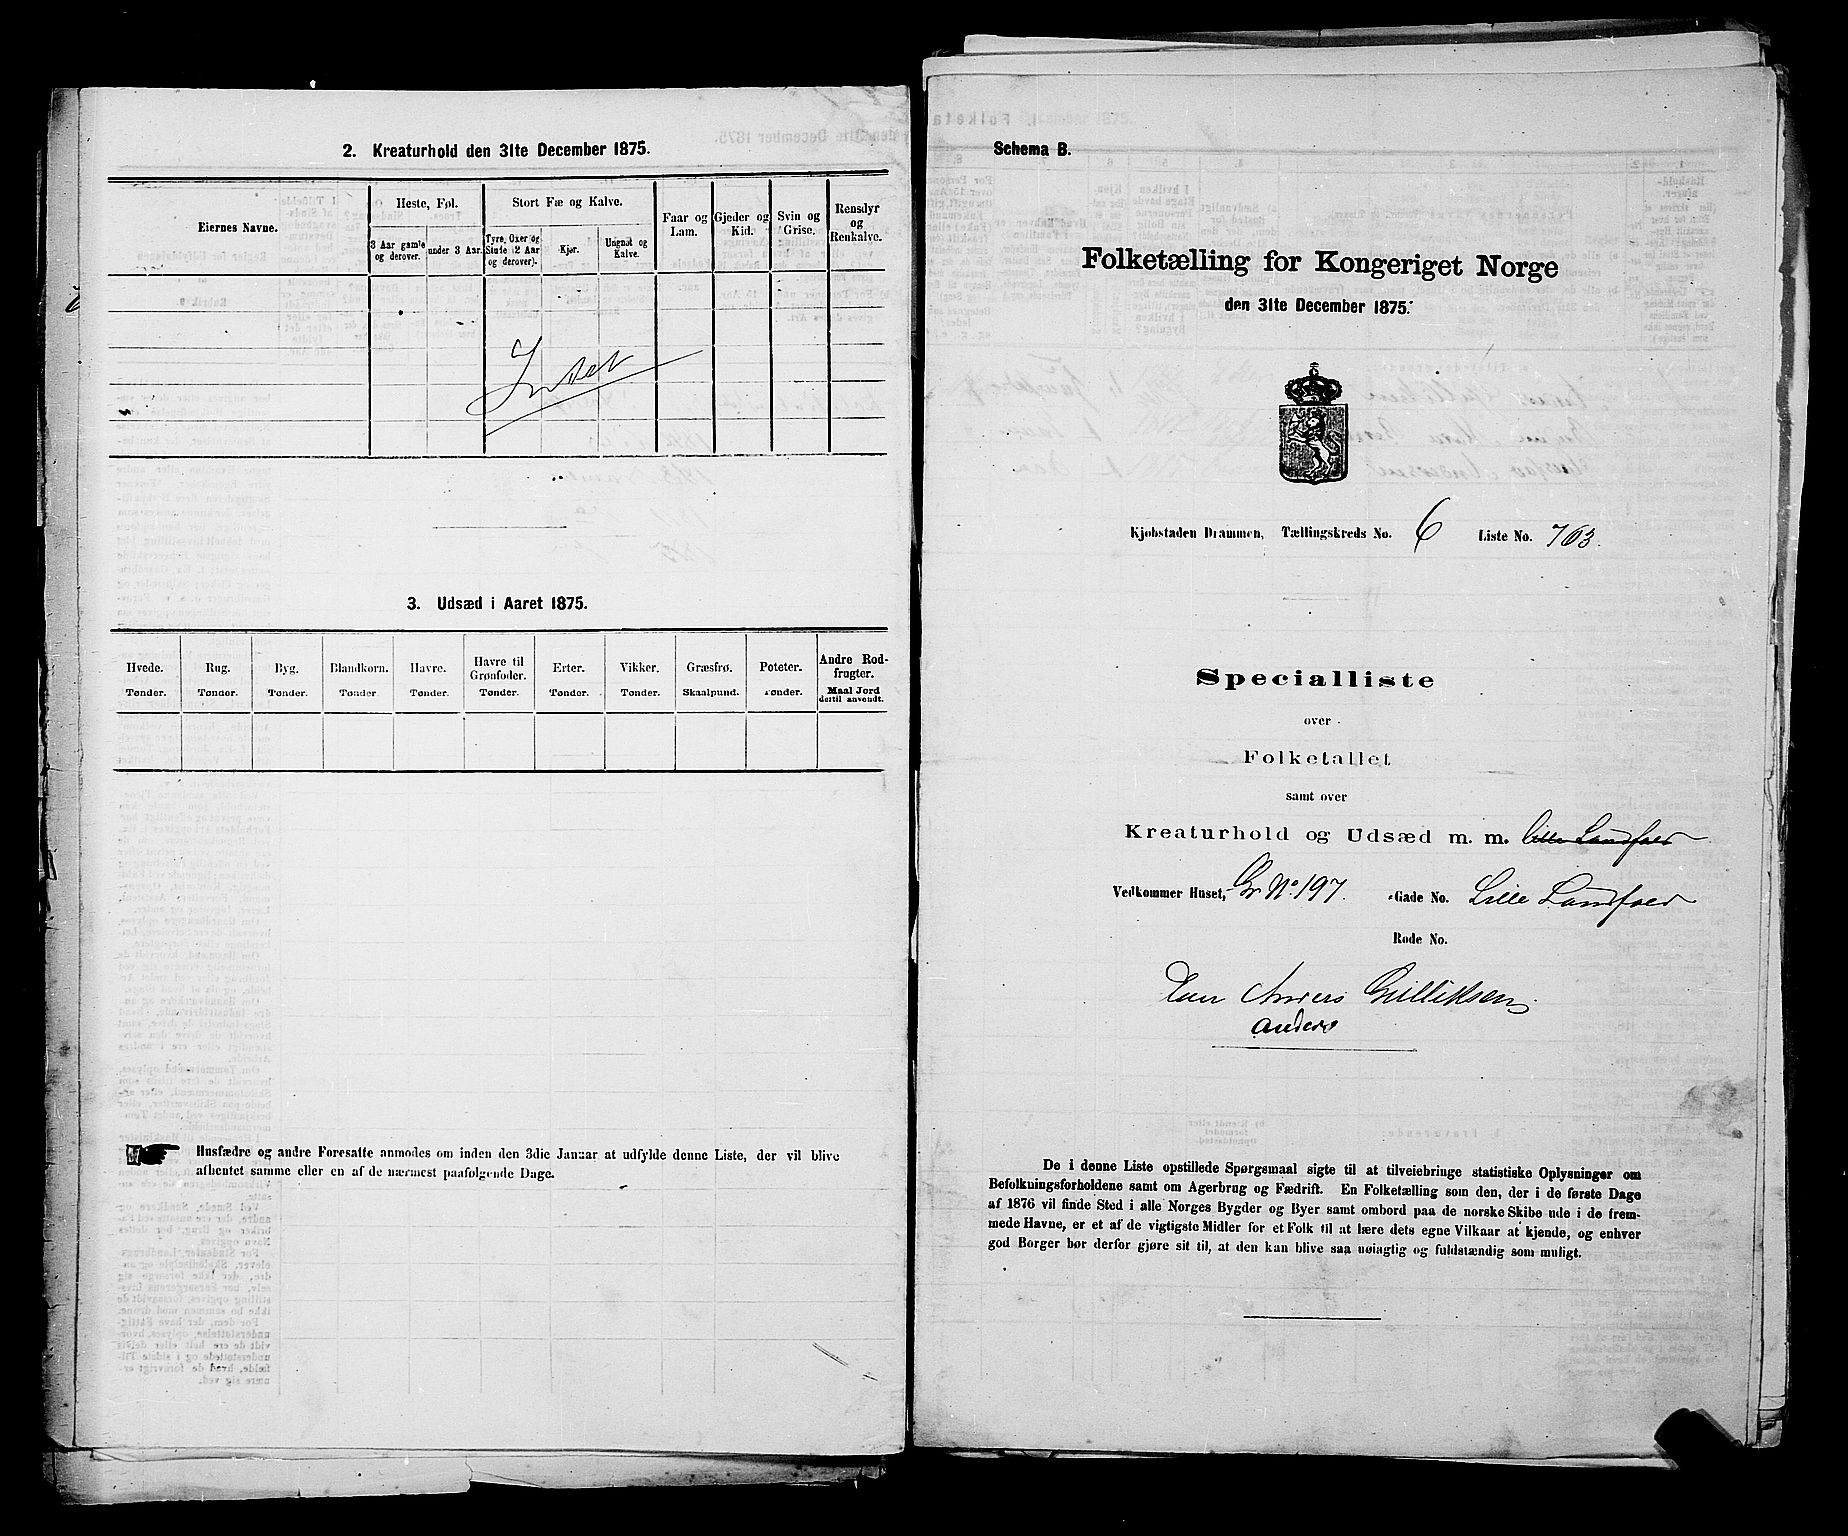 2. Kreaturhold den 31te December 1875.
Eiernes Navne.
Heste, Føl.
3 Aar gamle og derover.
under 3 Aar.
Stort Fæ og Kalve.
Tyre, Oxer og Stude (2 Aar og derover).
Kjør.
Ungnøt og Kalve.
Faar og Lam.
Gjeder og Kid.
Svin og Grise.
Rensdyr og Renkalve.
Intet
3. Udsæd i Aaret 1875.
Hvede. Rug. Byg. Blandkorn. Havre. Havre til Grønfoder. Erter. Vikker. Græsfrø. Poteter. Andre Rodfrugter.
Tønder. Tønder. Tønder. Tønder. Tønder. Tønder. Tønder. Tønder. Skaalpund. Tønder. Maal Jord dertil anvendt.
Husfædre og andre Foresatte anmodes om inden den 3die Januar at udfylde denne Liste, der vil blive
afhentet samme eller en af de nærmest paafølgende Dage.
Schema B.
Folketælling for Kongeriget Norge
den 31te December 1875.
Kjøbstaden Drammen, Tællingskreds No. 6 Liste No. 763.
Specialliste
over
Folketallet
samt over
Kreaturhold og Udsæd m. m. Lille Landfald
Vedkommer Huset, Gr No. 197. -Gade No. Lille Landfald
Rode No.
Anders Gulliksen
Anders
De i denne Liste opstillede Spørgsmaal sigte til at tilveiebringe statistiske Oplysninger om
Befolkningsforholdene samt om Agerbrug og Fædrift. En Folketælling som den, der i de første Dage
af 1876 vil finde Sted i alle Norges Bygder og Byer samt ombord paa de norske Skibe ude i de frem-
mede Havne, er et af de vigtigste Midler for et Folk til at lære dets egne Vilkaar at kjende, og enhver
god Borger bør derfor gjøre sit til, at den kan blive saa nøiagtig og fuldstændig som muligt.